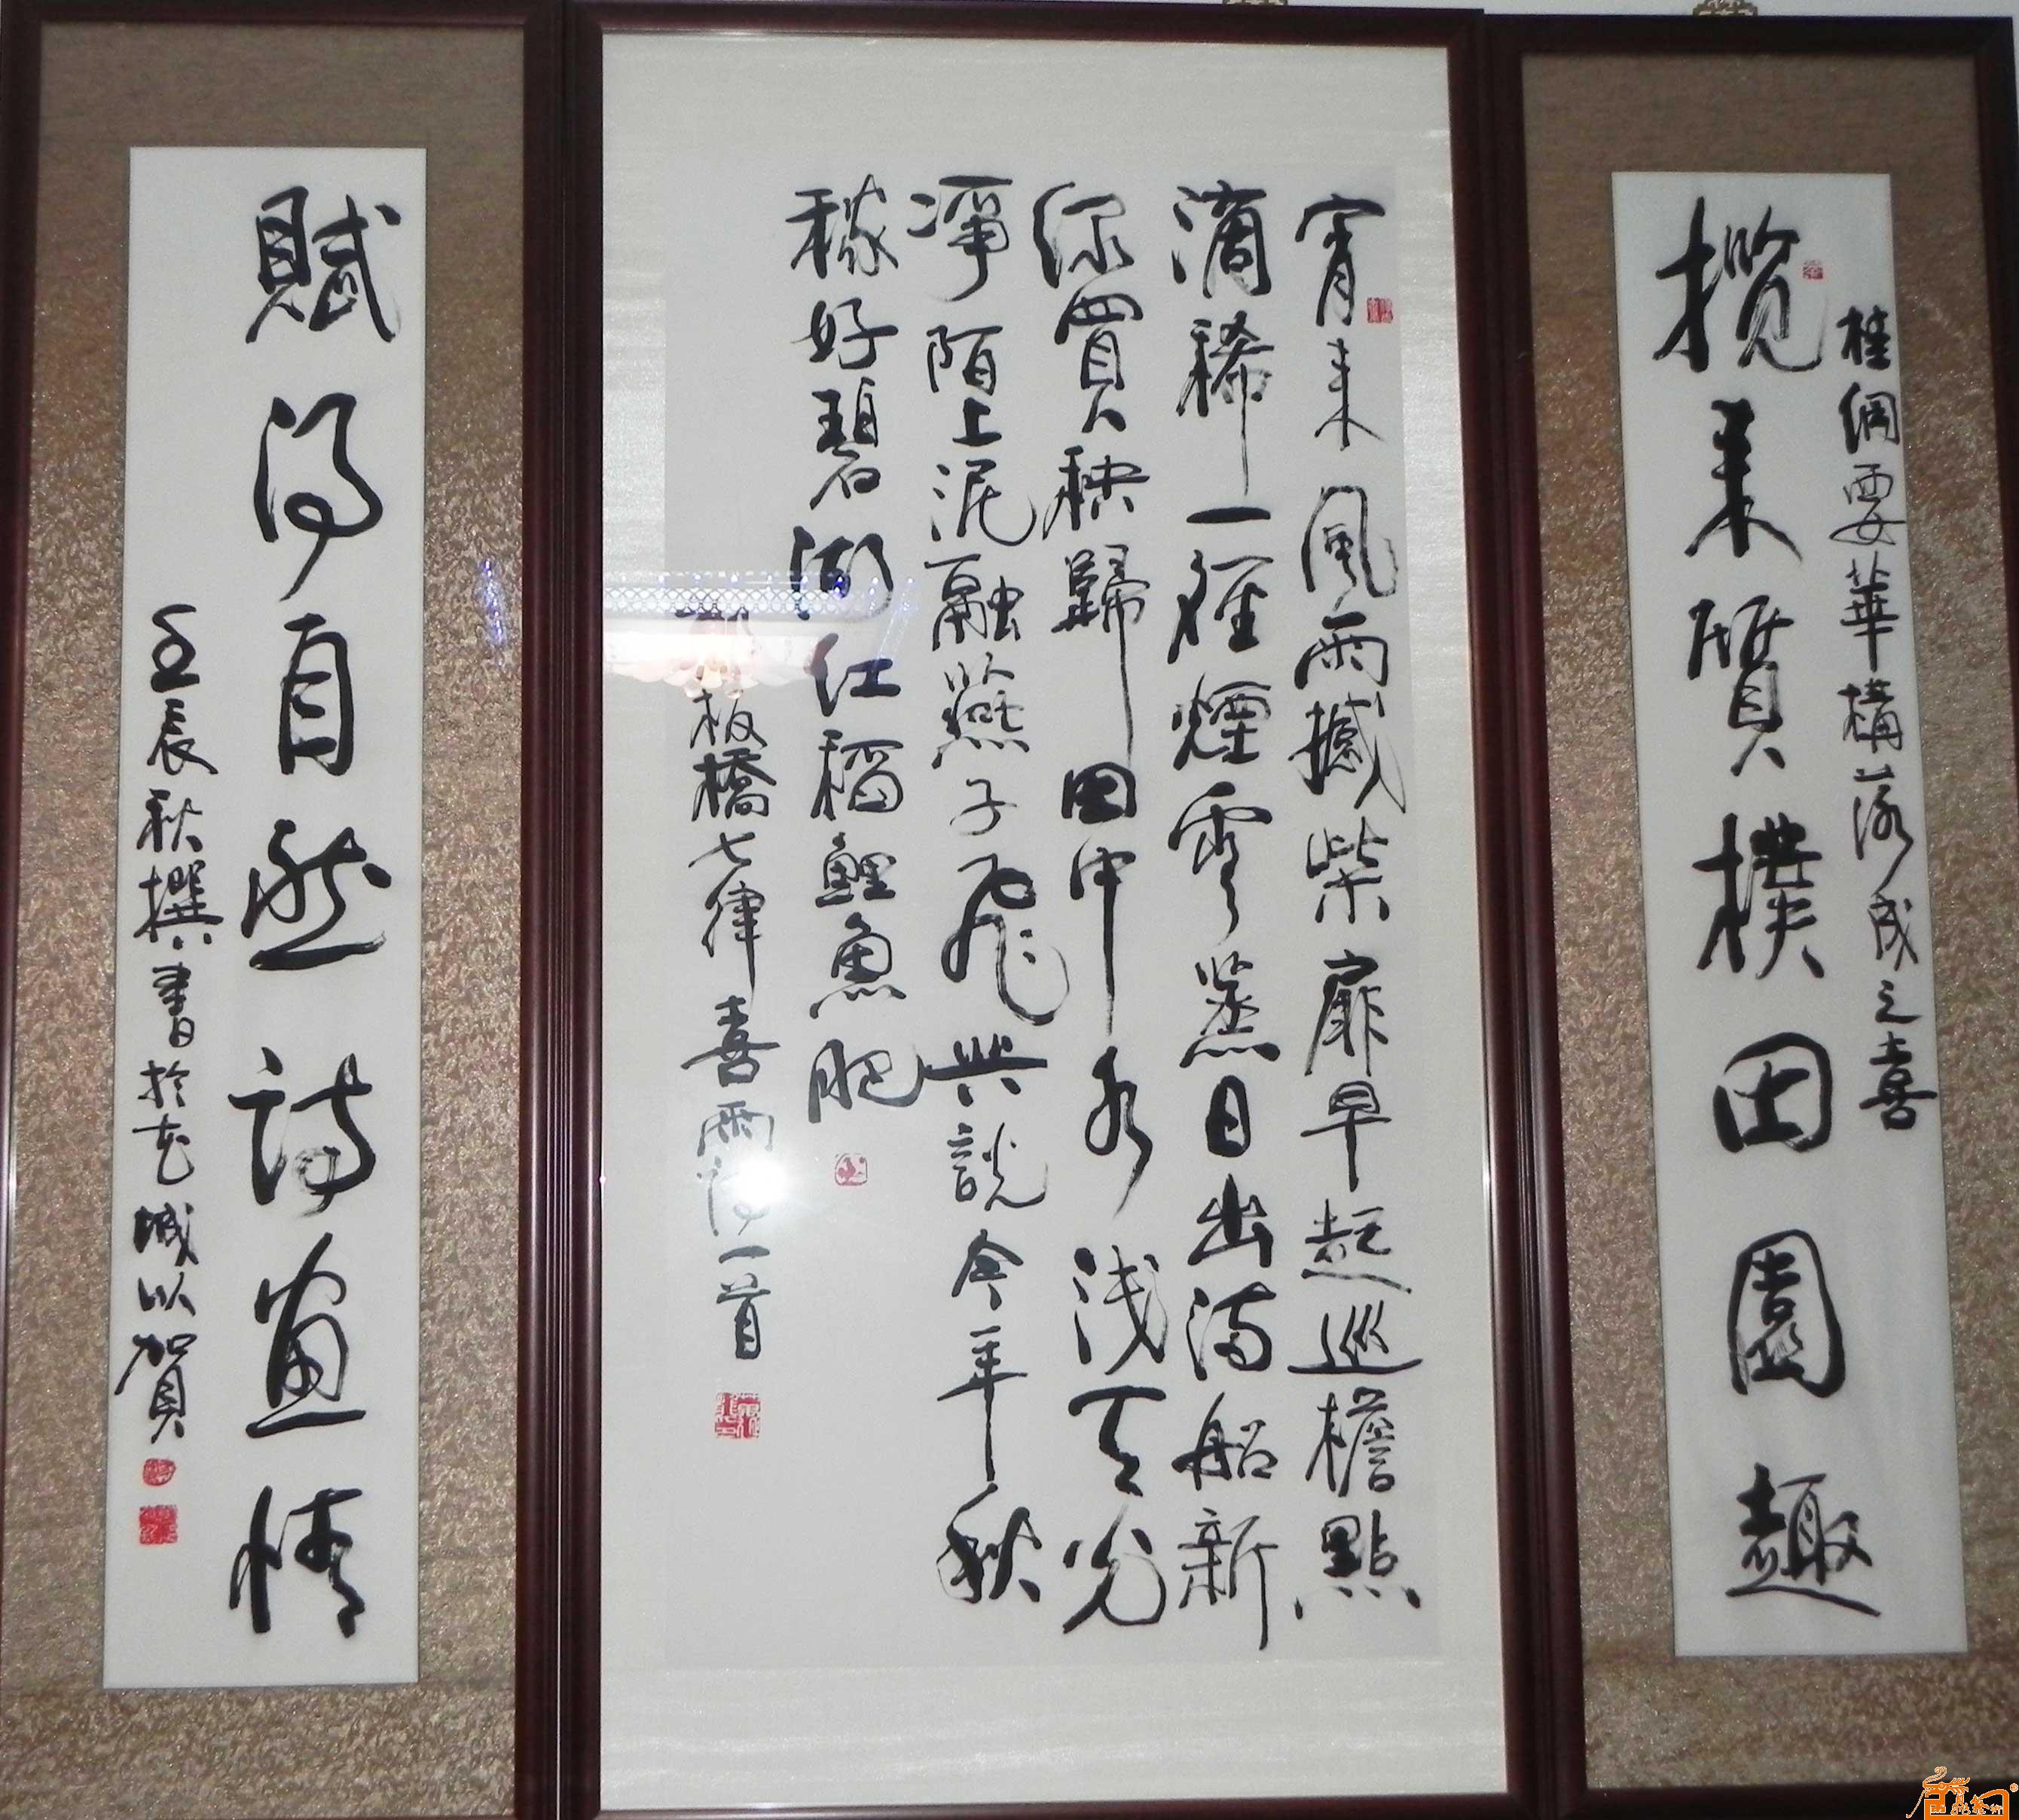 桂綱要華構落成之喜
攬來質樸田園趣
宵來風雨撼柴扉早起巡檐點
滴稀一徑煙雲蒸日出滿船新
綠買秧歸田中水淺天光
凈陌上泥融燕子飛共說今年秋
稼好碧湖红稻鯉魚肥
板橋七律喜雨詩一首
賦得自然詩畫情
壬辰秋撰書於花城以賀